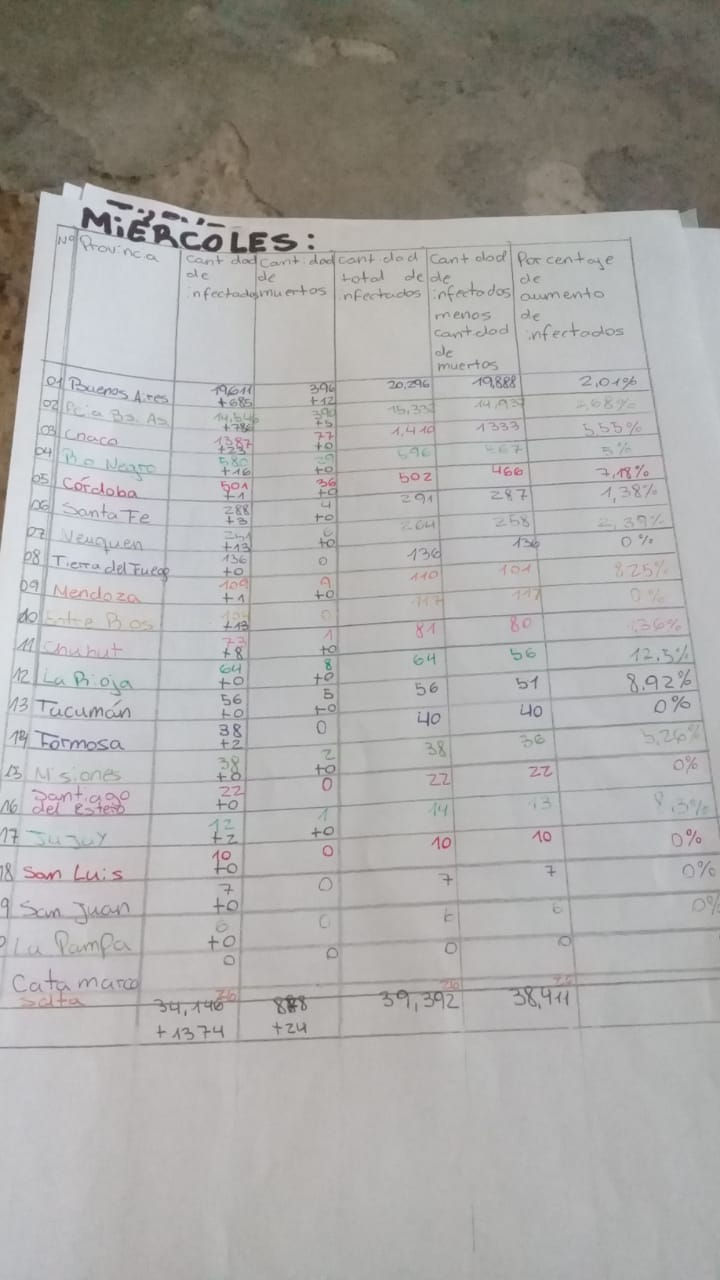 MIÉRCOLES:
Nº Provincia Cantidad de infectados Cantidad de muertos Cantidad total de infectados Cantidad de infectados menos cantidad de muertos Porcentaje de aumento de infectados
01 Buenos Aires 19,611 396 20,296 19,888 2,01%
+685 +12
02 Pcia Bs. As 14,546 390 15,332 14,937 2,68%
+786 +5
03 Chaco 1387 77 1,410 1333 5,55%
+23 +0
04 Rio Negro 580 29 596 567 5%
+16 +0
05 Córdoba 501 36 502 466 7,18%
+1 +0
06 Santa Fe 288 4 291 287 1,38%
+3 +0
07 Neuquen 251 6 264 258 2,39%
+13 +0
08 Tierra del Fuego 136 0 136 136 0%
+0
09 Mendoza 109 9 110 101 825%
+1 +0
10 Entre Rios 0 117 117 0%
+13
11 Chubut 73 1 81 80 1,36%
+8 +0
12 La Rioja 64 8 64 56 12.5%
+0 +0
13 Tucumán 56 5 56 51 8.92%
+0 +0
14 Formosa 38 0 40 40 0%
+2
15 Misiones 38 2 38 36 5,26%
+0 +0
Santiago 22 0 22 22 0%
16 del Estero +0
17 Jujuy 12 1 14 13 8,3%
+2 +0
18 San Luis 10 0 10 10 0%
+0
9 San Juan 7 0 7 7 0%
+0
La Pampa 6 0 6 6 0%
+0
Catamarca 0 0 0 0
Salta 26 26 26
34,146 39,392 38,411
+1374 +24